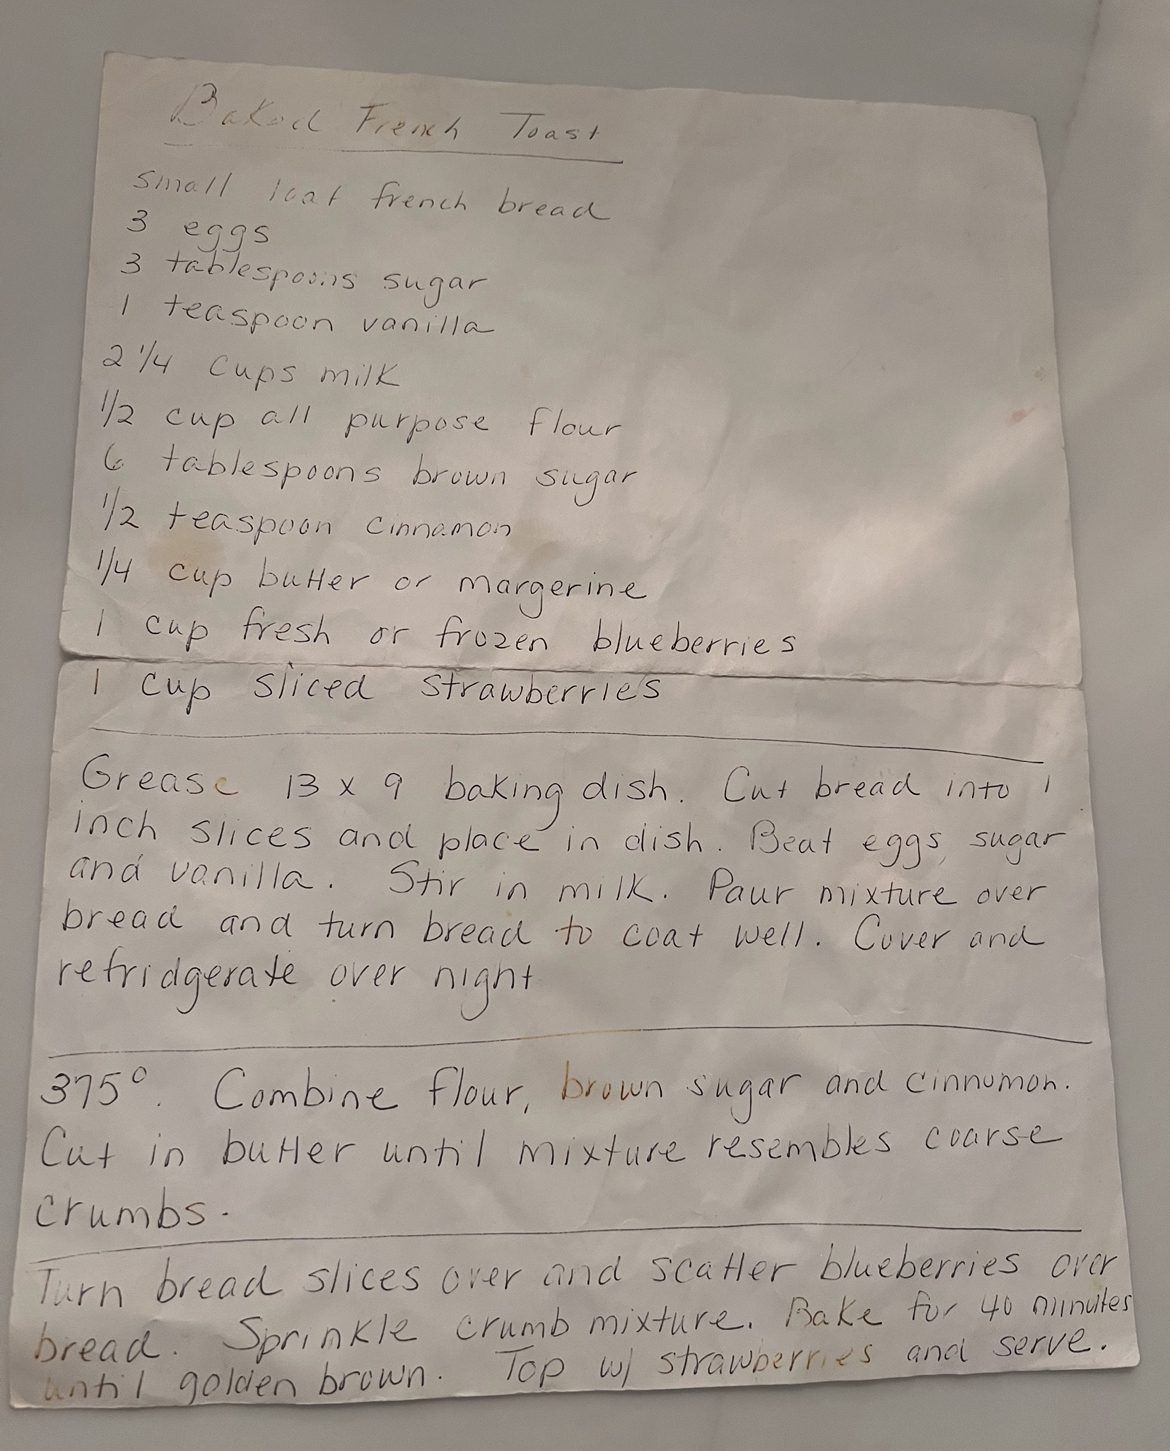 Baked French Toast
small loaf french bread
3 eggs
3 tablespoons sugar
1 teaspoon vanilla
2 1/4 cups milk
1/2 cup all purpose flour
6 tablespoons brown sugar
1/2 teaspoon cinnamon
1/4 cup butter or margerine
1 cup fresh or frozen blueberries
1 cup sliced strawberries
Grease 13 x 9 baking dish. Cut bread into 1
inch slices and place in dish. Beat eggs, sugar
and vanilla. Stir in milk. Pour mixture over
bread and turn bread to coat well. Cover and
refridgerate over night
375°. Combine flour, brown sugar and cinnomon.
Cut in butter until mixture resembles coarse
crumbs.
Turn bread slices over and scatter blueberries over
bread. Sprinkle crumb mixture. Bake for 40 minutes
until golden brown. Top w/ strawberries and serve.